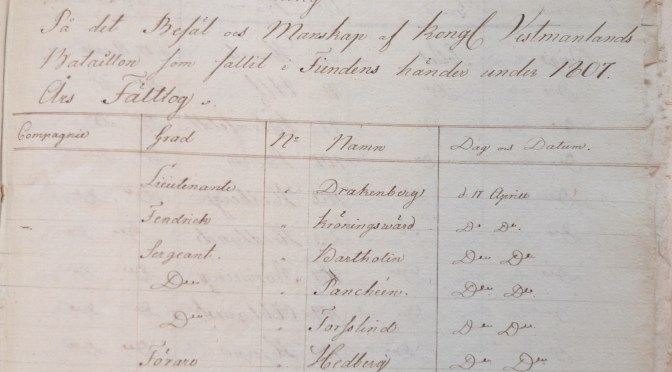 På det Befäl och Manskap af Kongl Vestmanlands
Bataillon som fallit i Fiendens händer under 1807.
Års Fälttog.
Compagnie Grad No Namn Dag och Datum.
Lieutenante Drakenberg d. 17 April
Fendrick Kröningswärd Do Do
Sergeant. Bartholin Do Do
Do Do Do
Do Forsslind Do Do
Förare Hedberg Do Do